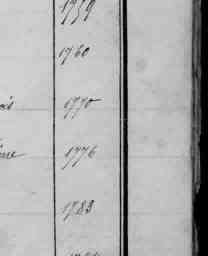 1759
1760
1770
1776
1783